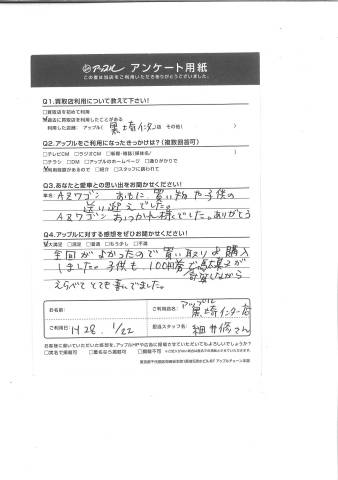 アップル アンケート用紙
この度は当店をご利用いただきありがとうございました。
Q1.買取店利用について教えて下さい!
□買取店を初めて利用
☑過去に買取店を利用したことがある
利用した店舗: アップル( 黒埼インター 店 その他( )
Q2.アップルをご利用になったきっかけは?(複数回答可)
□テレビCM □ラジオCM □新聞・雑誌(媒体名/ )
□チラシ □DM □アップルのホームページ □通りがかりで
☑利用経験があるので □紹介 □スタッフに誘われて
Q3.あなたと愛車との思い出をお聞かせください!
車名: AZワゴン おもに買い物と子供の
送り迎えでした。
AZワゴン おつかれ様でした。ありがとう
Q4.アップルに対する感想をぜひお聞かせください!
☑大満足 □満足 □普通 □もう少し □不満
前回がよかったので買い取りよ購入
しました。子供も100円券で
えらべてとても喜んでました。
お名前:
ご利用店名: アップル
黒埼インター店
ご利用日: H28. 1/22
担当スタッフ名: 細井修さん
お客様に書いていただいた感想を、アップルHPや広告に掲載させていただいてもよろしいでしょうか?
□実名で掲載可 □匿名なら掲載可 □掲載不可